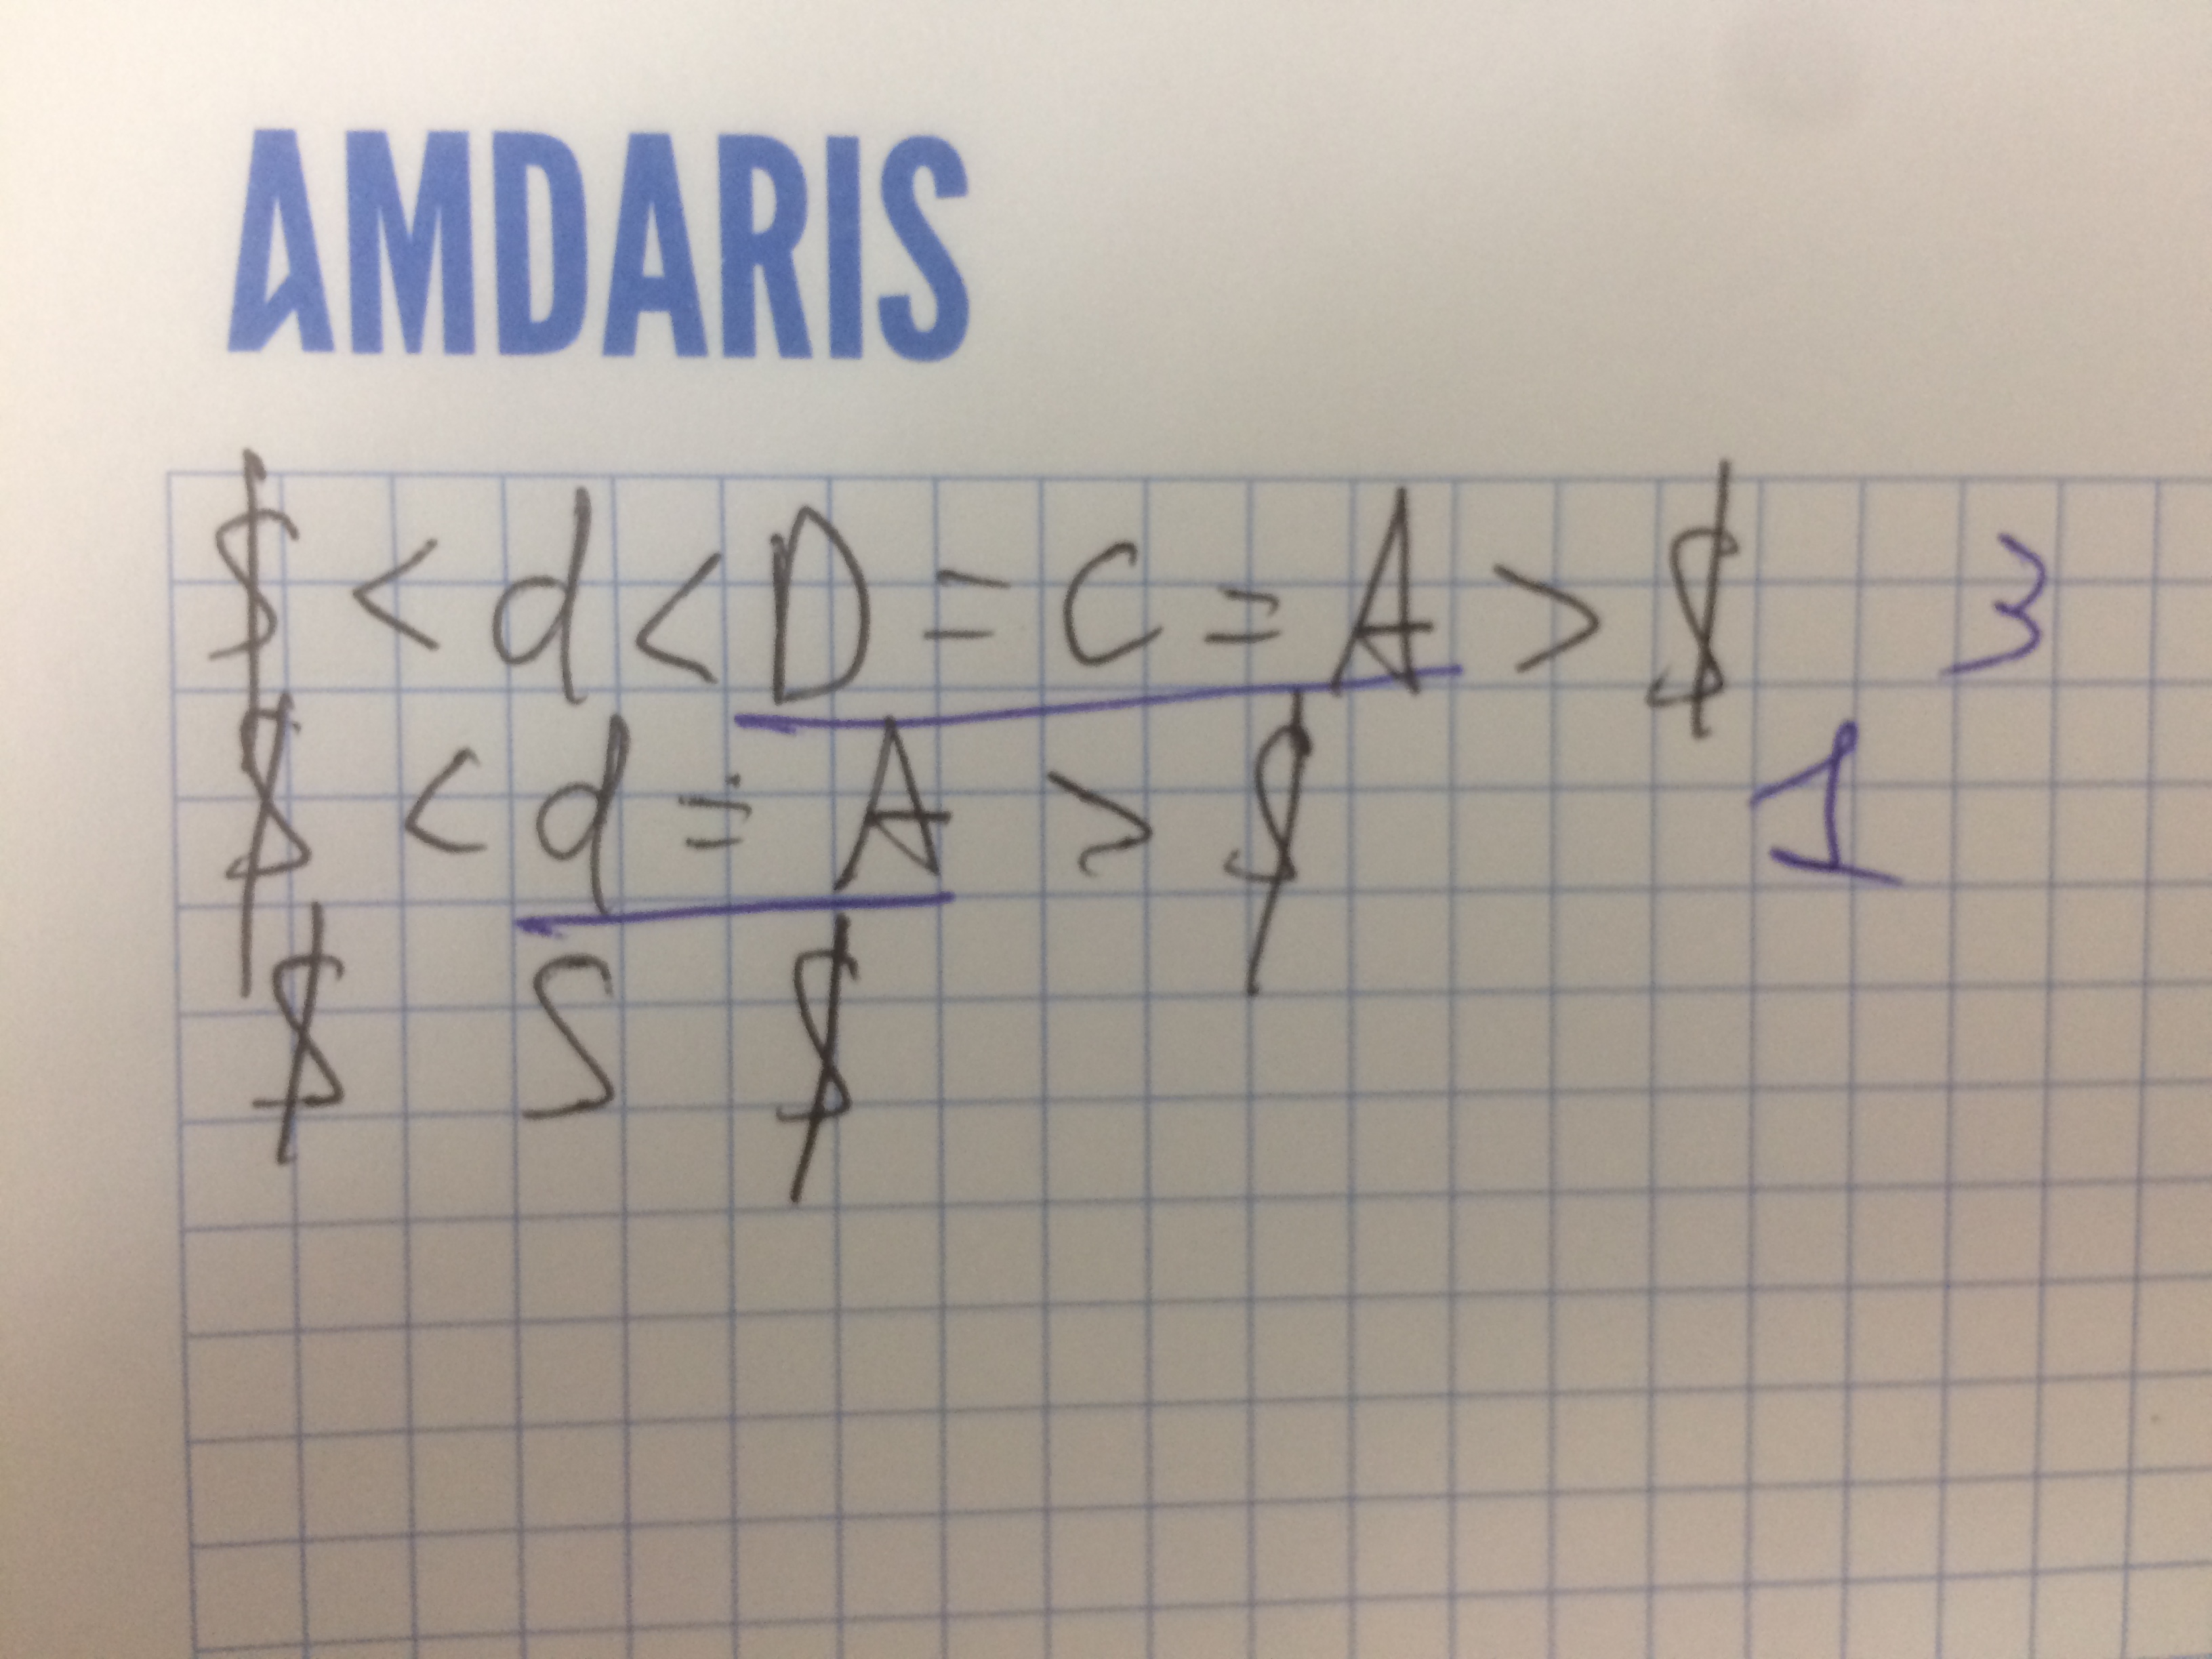 AMDARIS
$ < d < D = C = A > $ 3
$ < d = A > $ 1
$ S $